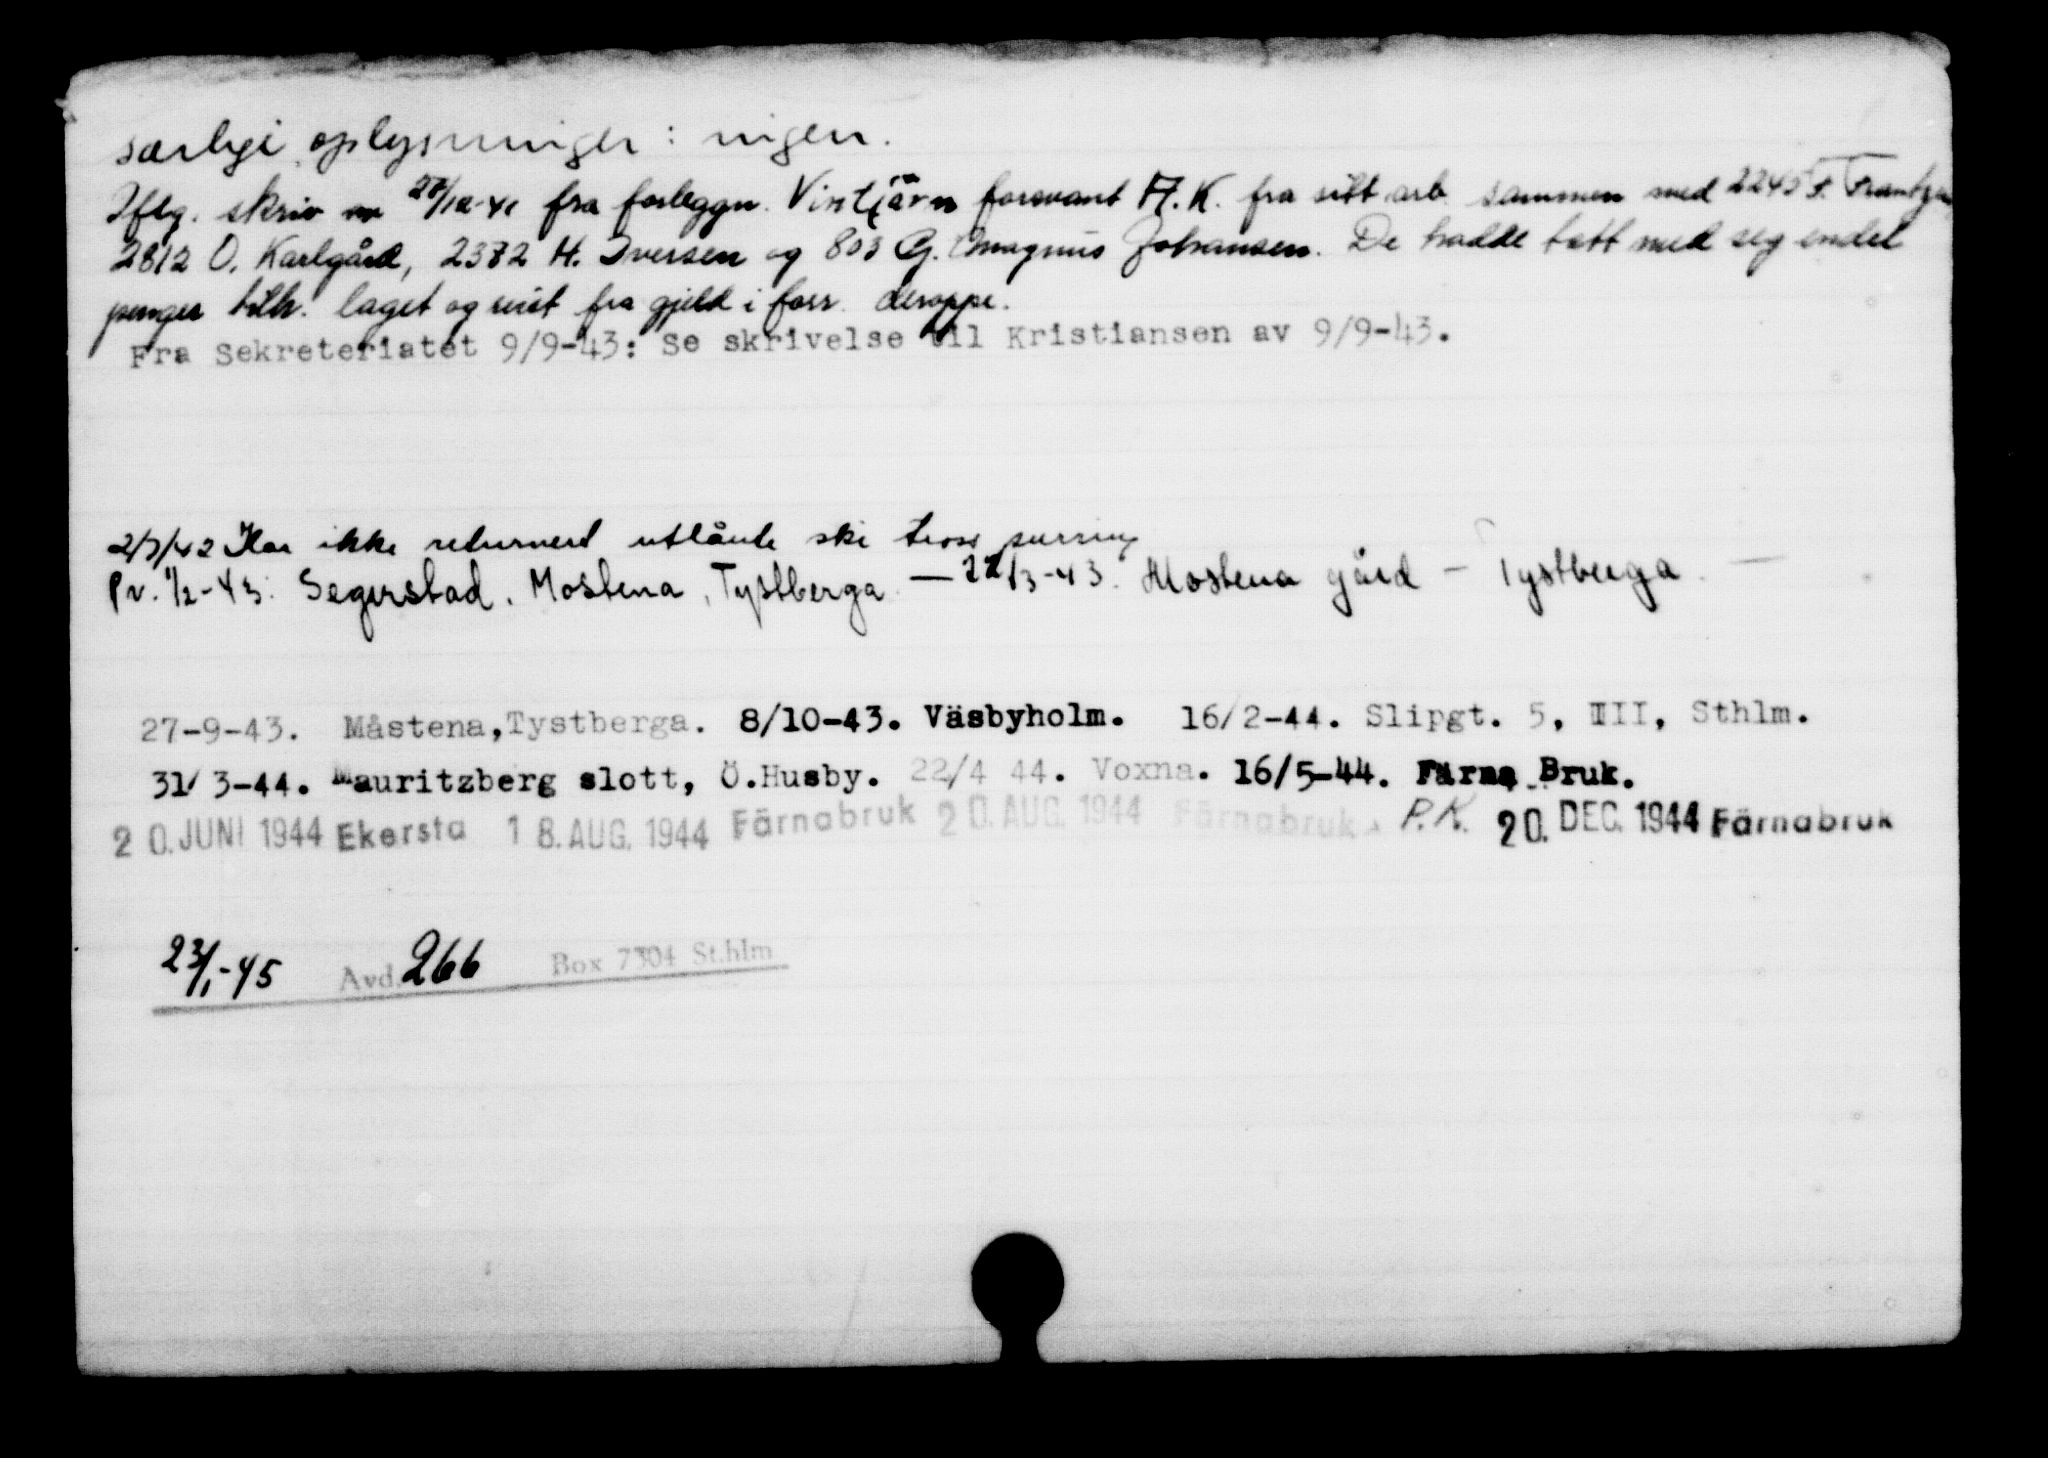 særlige oplysninger: ingen.
Iflg. skriv av 27/12-41 fra forleggn. Vintjärn forsvant A.K. fra sitt arb. sammen med 2245 F. Frantzen
2812 O. Karlgård, 2372 H. Iversen og 803 G. Magnus Johansen. De hadde tatt med seg endel
penger tilh. laget og reist fra gjeld i forr. deroppe.
Fra Sekreteriatet 9/9-43: Se skrivelse til Kristiansen av 9/9-43.
2/3/42 Har ikke returnert utlånte ski tross purring
Pr. 1/2-43: Segerstad, Mostena, Tystberga. — 22/3-43. Mostena gård - Tystberga. —
27-9-43. Måstena,Tystberga. 8/10-43. Väsbyholm. 16/2-44. Slipgt. 5, III, Sthlm.
31/3-44. Mauritzberg slott, Ö.Husby. 22/4 44. Voxna. 16/5-44. Färna Bruk.
20. JUNI 1944 Ekersta 18. AUG. 1944 Färnabruk 20. AUG. 1944 Färnabruk. P.K. 20. DEC. 1944 Färnabruk
23/1-45 Avd. 266 Box 7304 St.hlm